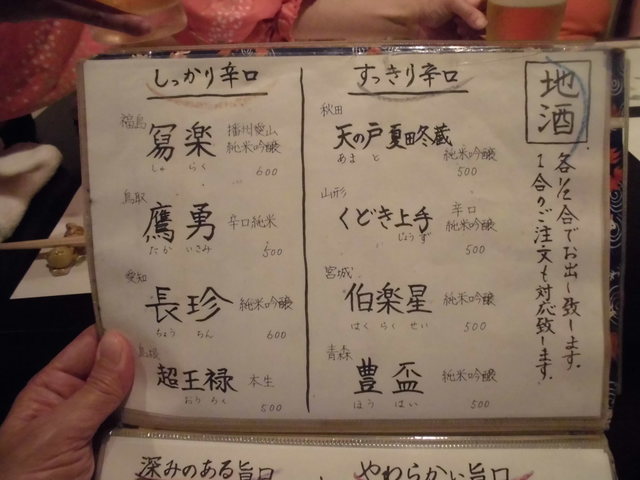 地酒
各1/2合でお出し致します。
1合のご注文も対応致します。
すっきり辛口
秋田
天の戸 夏田冬蔵
あまと
純米吟醸
500
山形
くどき上手
じょうず
辛口
純米吟醸
500
宮城
伯楽星
はくらくせい
純米吟醸
500
青森
豊盃
ほうはい
純米吟醸
500
しっかり辛口
福島
寫楽
しゃらく
播州愛山
純米吟醸
600
鳥取
鷹勇
たかいさみ
辛口純米
500
愛知
長珍
ちょうちん
純米吟醸
600
島根
超王禄
おうろく
本生
500
深みのある旨口
やわらかい旨口